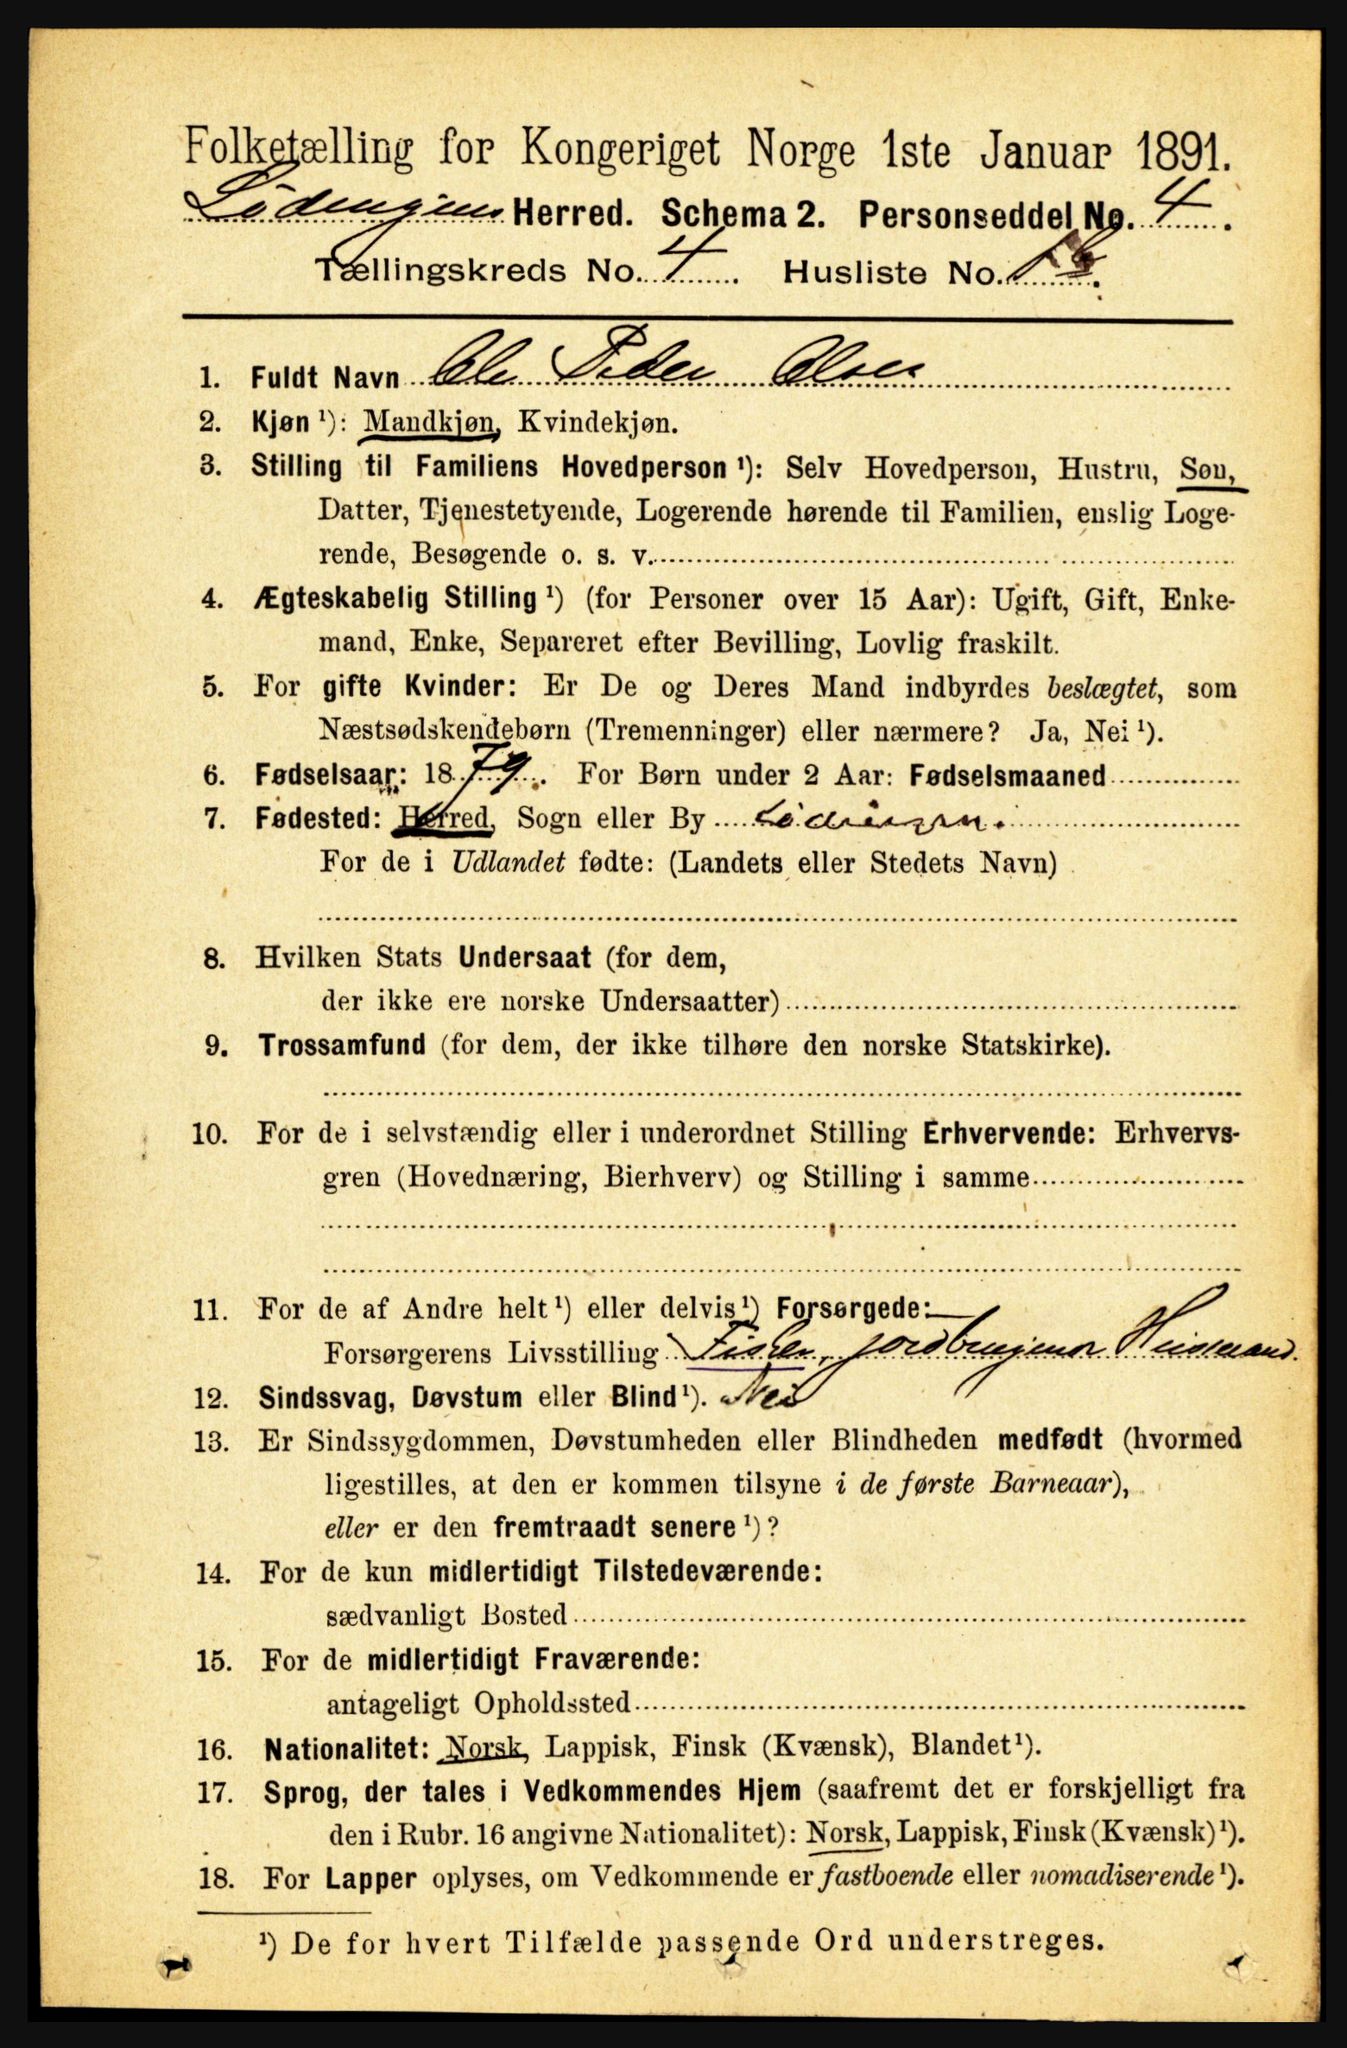 Folketælling for Kongeriget Norge 1ste Januar 1891.
Lødingens Herred. Schema 2. Personseddel No. 4.
Tællingskreds No. 4. Husliste No.
1. Fuldt Navn Ole Peder Olsen
2. Kjøn ¹): Mandkjøn, Kvindekjøn.
3. Stilling til Familiens Hovedperson ¹): Selv Hovedperson, Hustru, Søn,
Datter, Tjenestetyende, Logerende hørende til Familien, enslig Loge-
rende, Besøgende o. s. v.
4. Ægteskabelig Stilling ¹) (for Personer over 15 Aar): Ugift, Gift, Enke-
mand, Enke, Separeret efter Bevilling, Lovlig fraskilt.
5. For gifte Kvinder: Er De og Deres Mand indbyrdes beslægtet, som
Næstsødskendebørn (Tremenninger) eller nærmere? Ja, Nei ¹).
6. Fødselsaar: 1879. For Børn under 2 Aar: Fødselsmaaned
7. Fødested: Herred, Sogn eller By Lødingen.
For de i Udlandet fødte: (Landets eller Stedets Navn)
8. Hvilken Stats Undersaat (for dem,
der ikke ere norske Undersaatter)
9. Trossamfund (for dem, der ikke tilhøre den norske Statskirke).
10. For de i selvstændig eller i underordnet Stilling Erhvervende: Erhvervs-
gren (Hovednæring, Bierhverv) og Stilling i samme
11. For de af Andre helt ¹) eller delvis ¹) Forsørgede:
Forsørgerens Livsstilling Fisker, jordbrugende Husmand.
12. Sindssvag, Døvstum eller Blind ¹). Nei
13. Er Sindssygdommen, Døvstumheden eller Blindheden medfødt (hvormed
ligestilles, at den er kommen tilsyne i de første Barneaar),
eller er den fremtraadt senere ¹)?
14. For de kun midlertidigt Tilstedeværende:
sædvanligt Bosted
15. For de midlertidigt Fraværende:
antageligt Opholdssted
16. Nationalitet: Norsk, Lappisk, Finsk (Kvænsk), Blandet ¹).
17. Sprog, der tales i Vedkommendes Hjem (saafremt det er forskjelligt fra
den i Rubr. 16 angivne Nationalitet): Norsk, Lappisk, Finsk (Kvænsk) ¹).
18. For Lapper oplyses, om Vedkommende er fastboende eller nomadiserende ¹).
¹) De for hvert Tilfælde passende Ord understreges.